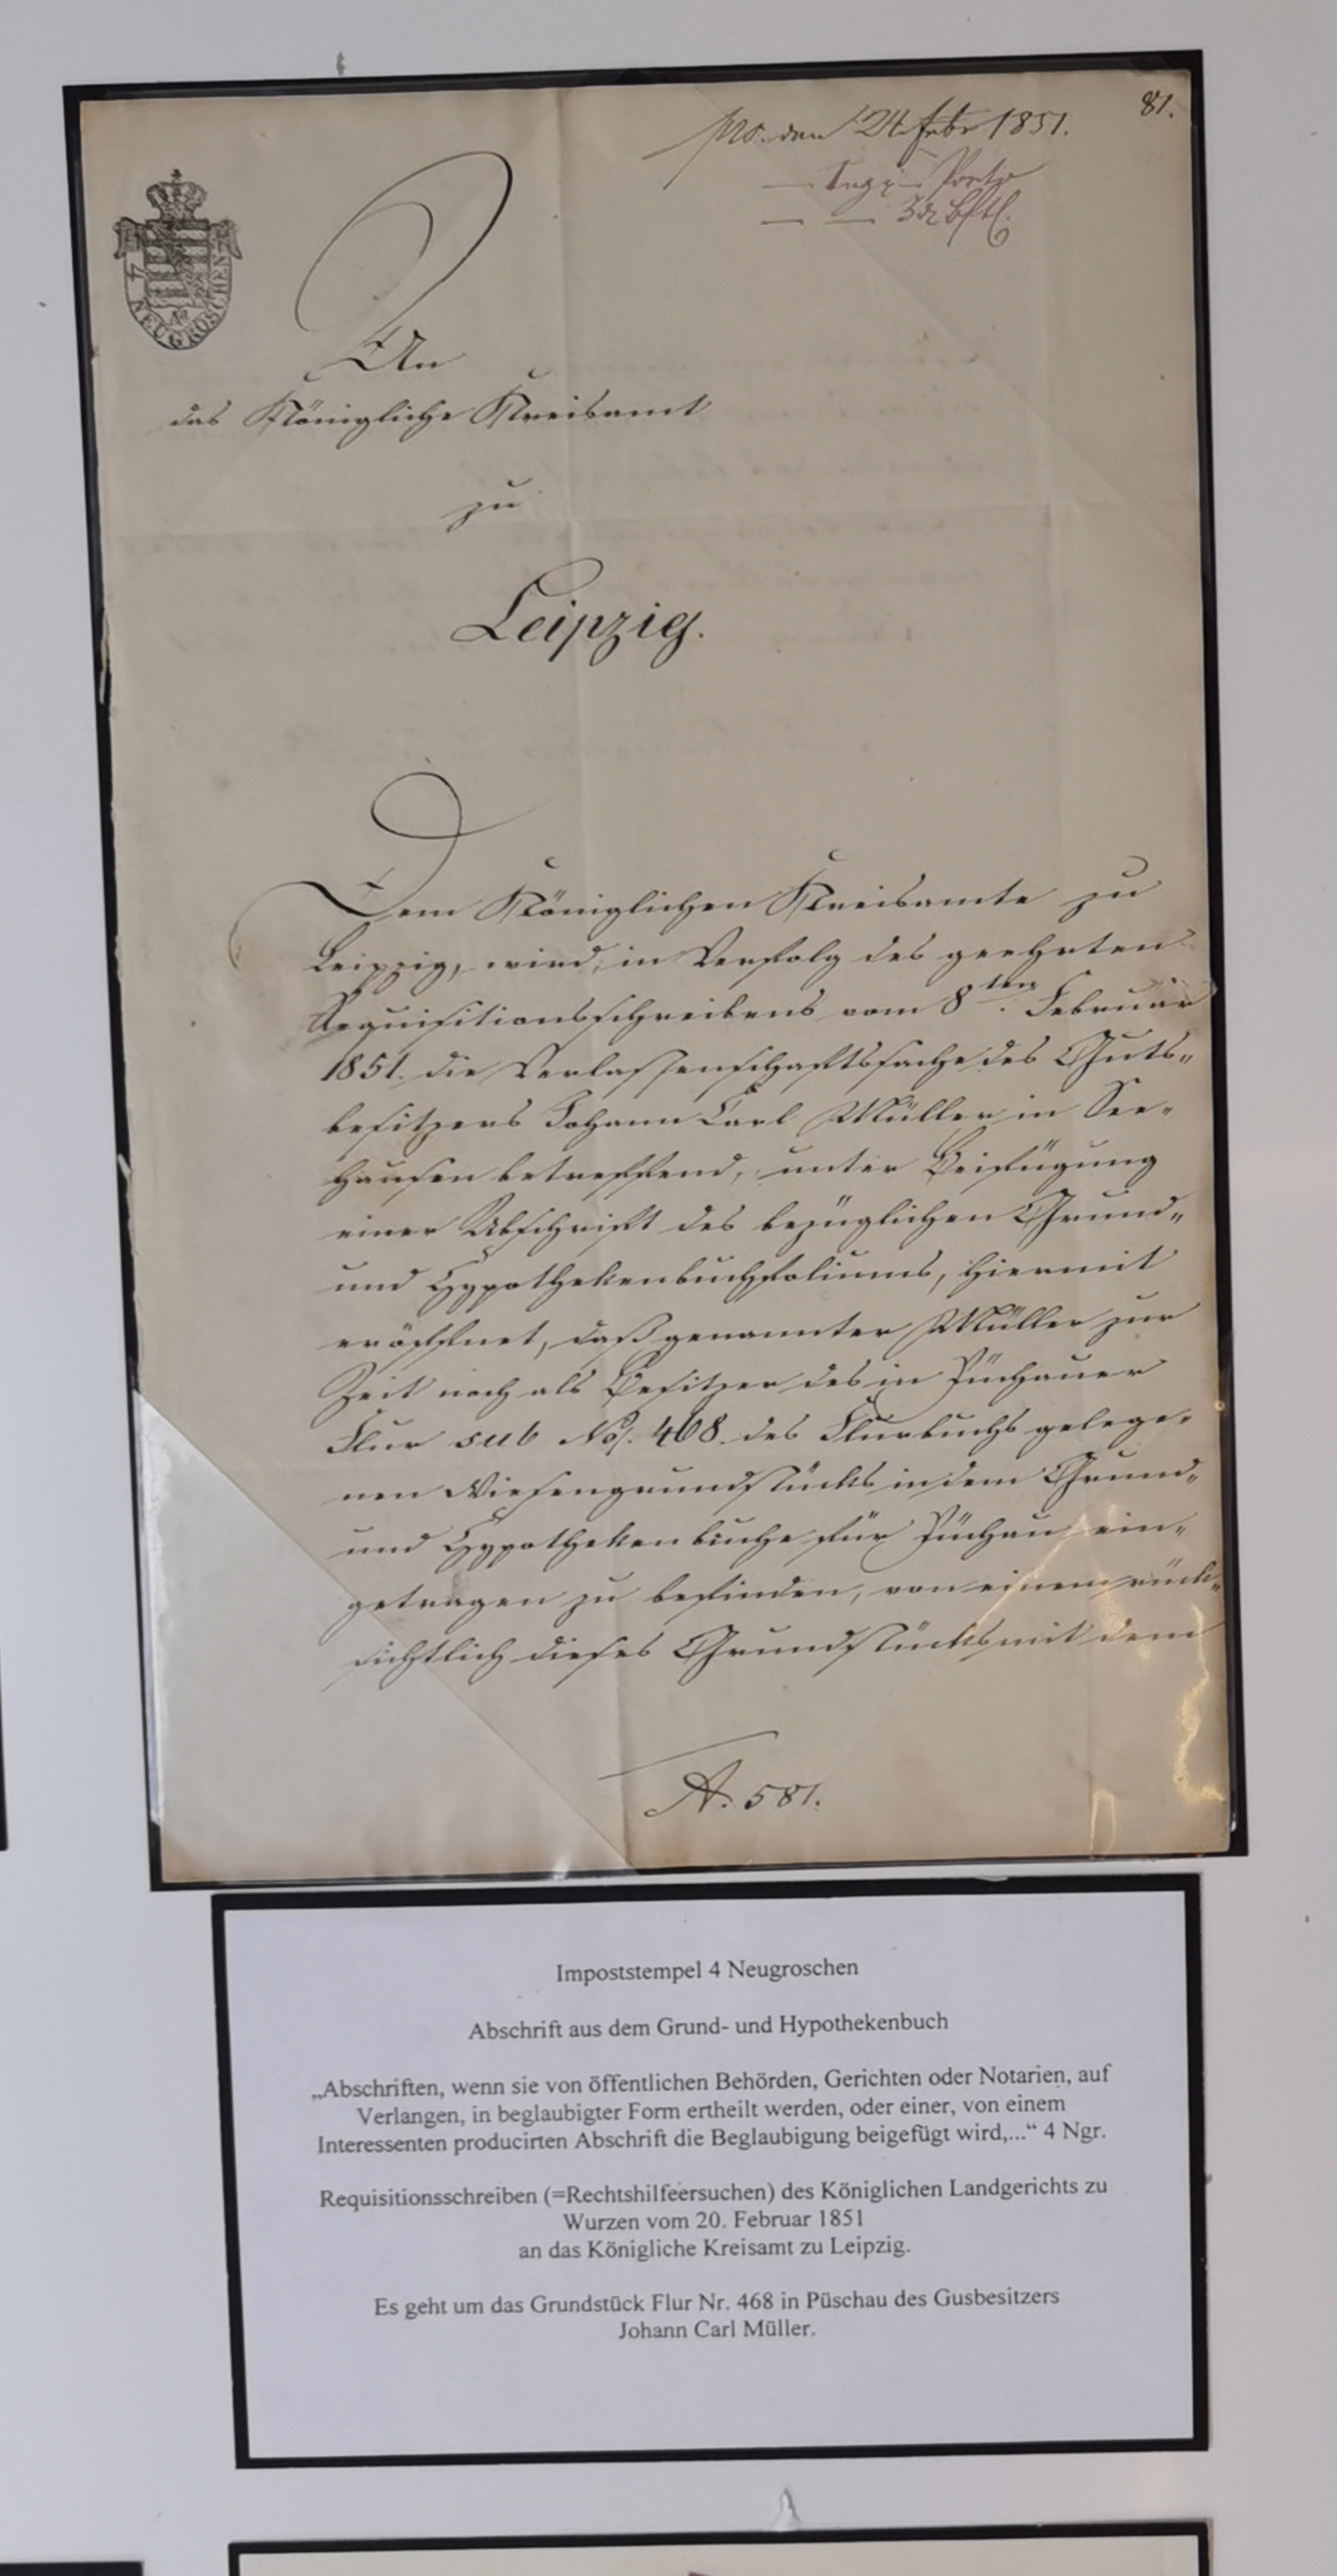 81.
den 24. Febr 1851.
4
NEUGROSCHEN
An
das Königliche Kreisamt
zu
Leipzig.
Dem Königlichen Kreisamte zu
Leipzig, wird, in Verfolg des geehrten
Requisitionsschreibens vom 8ten. Februar
1851. die Verlassenschaftssache des Guts„
besitzers Johann Carl Müller in See„
hausen betreffend, unter Beifügung
einer Abschrift des bezüglichen Grund„
und Hypothekenbuchfoliums, hiermit
eröffnet, daß genannter Müller zur
Zeit noch als Besitzer des in Püchauer
Flur sub No. 468. des Flurbuchs gelege„
nen Wiesengrundstücks in dem Grund„
und Hypothekenbuche für Püchau ein„
getragen zu befinden, von einem rück„
sichtlich dieses Grundstücks mit dem
A. 581.
Impoststempel 4 Neugroschen
Abschrift aus dem Grund- und Hypothekenbuch
„Abschriften, wenn sie von öffentlichen Behörden, Gerichten oder Notarien, auf
Verlangen, in beglaubigter Form ertheilt werden, oder einer, von einem
Interessenten producirten Abschrift die Beglaubigung beigefügt wird,...“ 4 Ngr.
Requisitionsschreiben (=Rechtshilfeersuchen) des Königlichen Landgerichts zu
Wurzen vom 20. Februar 1851
an das Königliche Kreisamt zu Leipzig.
Es geht um das Grundstück Flur Nr. 468 in Püschau des Gusbesitzers
Johann Carl Müller.